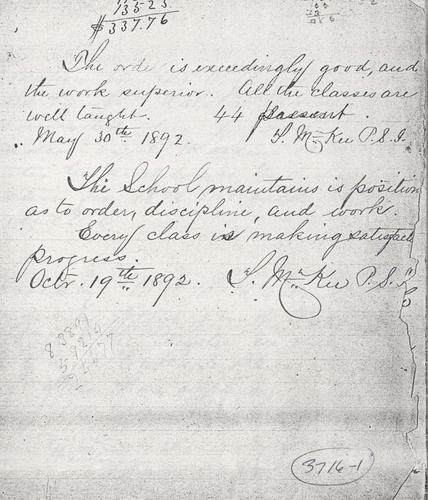 13525
$337.76
The orde is exceedingly good, and
the work superior. All the classes are
well taught. 44 present.
May 30th 1892. T. McKee P.S.I.
The School maintains is position
as to order, discipline, and work.
Every class is making satisfact
progress.
Octr. 19th 1892. T. McKee P.S.I.
3716-1